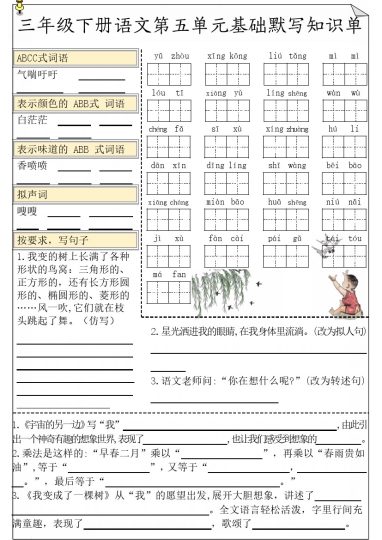 三年级下册语文第五单元基础默写知识单
ABCC式词语
气喘吁吁
表示颜色的 ABB式 词语
白茫茫
表示味道的 ABB 式词语
香喷喷
拟声词
嗖嗖
按要求，写句子
1.我变的树上长满了各种
形状的鸟窝：三角形的、
正方形的，还有长方形圆
形的、椭圆形的、菱形的
……风一吹，它们就在枝
头跳起了舞。（仿写）
yǔ zhòu xīng kōng liú tǎng mì mì
lóu tī xiōng yú líng shēng wàn wù
chéng fǎ sī xù xíng zhuàng hú li
dān xīn dīng líng shī wàng bēi bāo
xiāng chéng miàn bāo huā shēng niú nǎi
jì xù fān cài pái gǔ
má fan
2.星光洒进我的眼睛,在我身体里流淌。(改为拟人句)
3.语文老师问:“你在想什么呢?”(改为转述句)
1.《宇宙的另一边》写“我”,由此引
出一个神奇有趣的想象世界,表现了,也让我们感受到想象的。
2.乘法是这样的:“早春二月”乘以“”，再乘以“春雨贵如
油”,等于“”，又等于，
。”，最后等于“。”
3.《我变成了一棵树》从“我”的愿望出发,展开大胆想象，讲述了
。全文语言轻松活泼，字里行间充
满童趣，表现了，歌颂了。